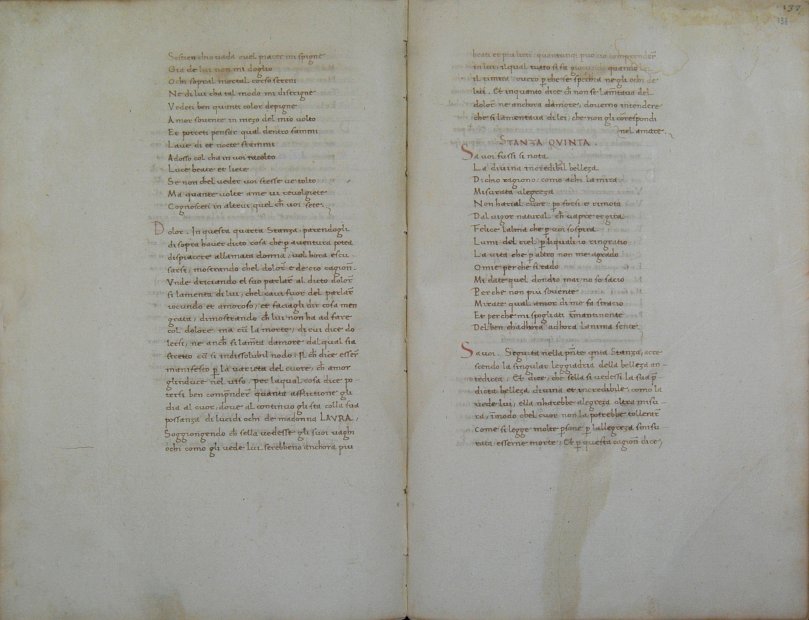 Sostien ch io vada ove l piacer mi spigne
Gia de lui non mi doglio
Ochi sopral mortal corso sereni
Ne di lui cha tal nodo mi distrigne
Vedeti ben quanti color depigne
Amor sovente in mezo del mio volto
Et potreti pensar qual dentro fammi
Lave di et nocte stammi
Adosso col cha in voi racolto
Luce beate et liete
Se non chel veder voi stesse ve tolto
Ma quante volte a me vi revolgiete
Cognosceti in altrui quel ch̄ voi sete,
Dolor. In questa quarta Stanza, parendogli
di sopra haver dicto cosa che ꝑ aventura potea
dispiacere all amata donna, vol hora escu
sarsi, mostrando chel dolor̄ e decto cagion̄.
Unde driciando el suo parlar̄ al dicto dolor̄
si lamenta di lui, chel cavi fuor del parlar̄
iocundo et amoroso, et faciagli dir cosa men
grata, dimostrando ch̄ lui non ha ad fare
col dolore ma cū la morte, di cui dice do
lersi, ne anch̄ si lam̄ta damore dal qual sia
stretto cū si indissolubil nodo, Il ch̄ dice esser̄
manifesto ꝑ la varieta del cuore, ch̄ amor
glinduce nel viso, per laqual cosa dice po
tersi ben comp̄nder̄ quanta afflictione gli
dia al cuor, dove al continuo gli sta colla sua
possanza di lucidi ochi de madonna LAVRA,
Soggiongendo ch̄ s ella vedesse gli suoi vaghi
ochi como gli vede lui serebbeno anchora piu
137
138
beati et piu lieti, quantunq̄ puo cio comprender̄
in lui, il qual tuto si fa quando
il rimira, overo ꝑ che se specchia negli ochi de
lui. Et in quanto dice ch̄ non se lam̄tava del
dolor̄ ne anchora damore, dovemo intendere
che si lamentava di lei, che non gli correspondi
nel amare.
STANZA QVINTA.
Savoi fussi si nota
La divina incredibil belleza
Di ch io ragiono, como a chi la mira
Misurata alegreza
Non havria l cuore: po forsi e rimota
Dal vigor natural ch̄ v apre et gira
Felice l alma che ꝑ voi sospira
Lumi del ciel ꝑ li quali io ringratio
La vita che ꝑ altro non me agrado
Oime perche si rado
Mi date quel dond io mai no so satio
Perche non piu sovente
Mirate qual amor di me fa stratio
Et perche mi spogliati īmantinente
Del ben ch ad hora ad hora l anima sente,
Savoi. Seguita nella p̄nte q̄nta Stanza, acre
scendo la singular leggiadria della belleza an
tedicta, Et dice, che s ella si vedessi la sua p̄
dicta belleza divina et incredibile, como la
vede lui, ella nharebbe alegreza oltra misu
ra, in modo chel cuor non la potrebbe tollerar̄
Come si legge molte ꝑsone ꝑ lallegreza smisu
rata esserne morte, Et ꝑ questa cagion̄ dice,